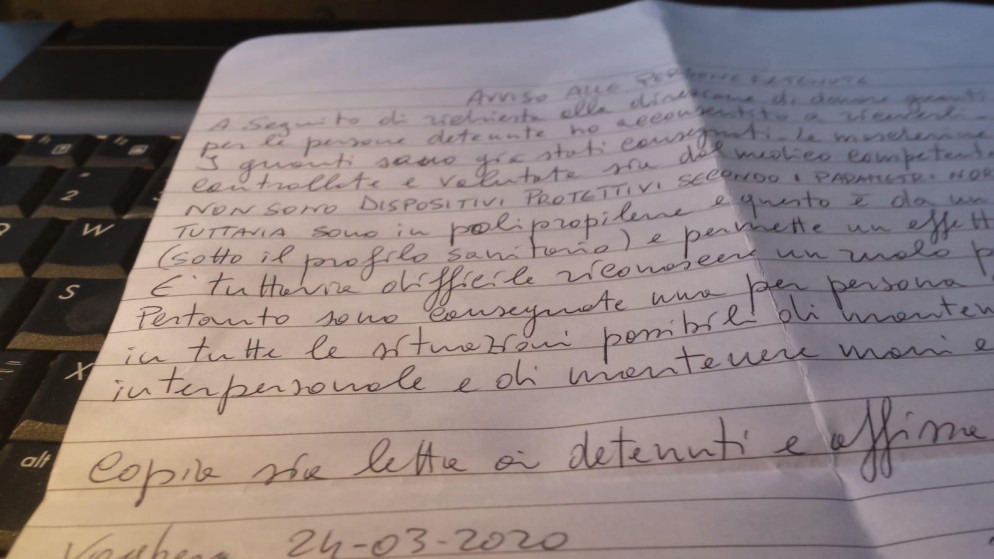 AVVISO ALLE PERSONE DETENUTE
A seguito di richiesta alla direzione di donare guanti
per le persone detenute ho acconsentito a riceverli.
I guanti sono già stati consegnati. Le mascherine
controllate e valutate sia dal medico competent
NON SONO DISPOSITIVI PROTETTIVI SECONDO I PARAMETRI NOR
TUTTAVIA SONO in polipropilene e questo è da un
(sotto il profilo sanitario) e permette un effett
E' tuttavia difficile riconoscere un ruolo p
Pertanto sono consegnate una per persona
in tutte le situazioni possibili di manten
interpersonale e di mantenere mani e
Copia sia letta ai detenuti e affissa
24-03-2020
2
W
S
X
alt